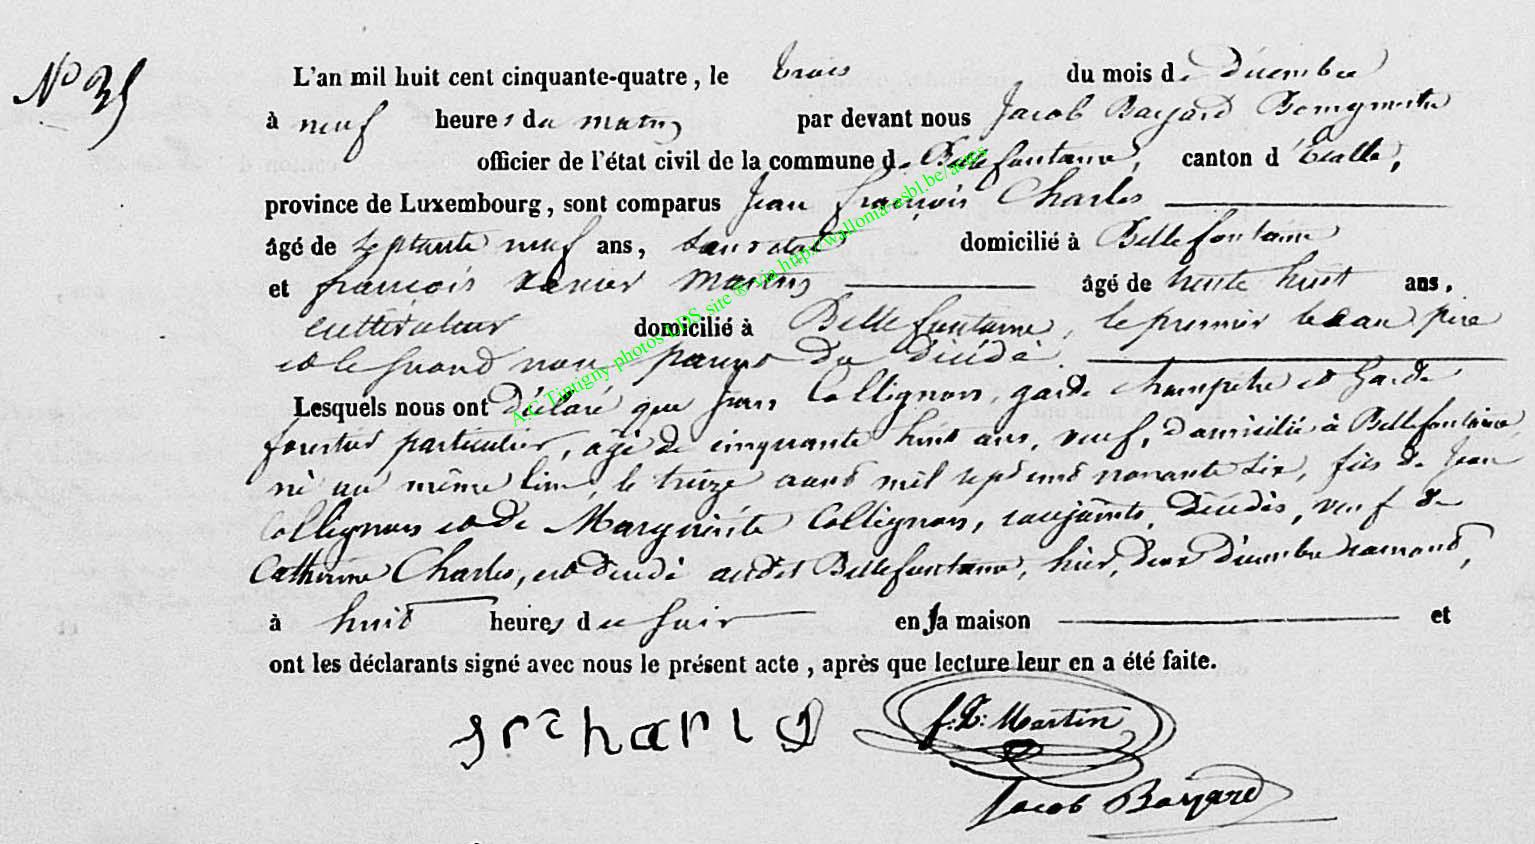 N° 35
L'an mil huit cent cinquante-quatre, le trois du mois de Décembre
à neuf heures du matin par devant nous Jacob Bayard Bourgmestre
officier de l'état civil de la commune de Bellefontaine, canton d'Etalle,
province de Luxembourg, sont comparus Jean françois Charles
âgé de septante neuf ans, sans état domicilié à Bellefontaine
et françois Xavier Martin âgé de trente huit ans,
cultivateur domicilié à Bellefontaine, le premier beau père
et le second non parent du décédé
Lesquels nous ont déclaré que Jean Collignon, garde champêtre et Garde
forestier particulier, âgé de cinquante huit ans, veuf, domicilié à Bellefontaine,
né au même lieu, le treize août mil sept cent nonante six, fils de Jean
Collignon et de Marguerite Collignon, conjoints, décédés, veuf de
Catherine Charles, est décédé audit Bellefontaine, hier, deux Décembre courant,
à huit heures du soir en sa maison et
ont les déclarants signé avec nous le présent acte, après que lecture leur en a été faite.
f. X. Martin
Jacob Bayard
A.C Tintigny photos DDS site © via http://wallonia-asbl.be/actes